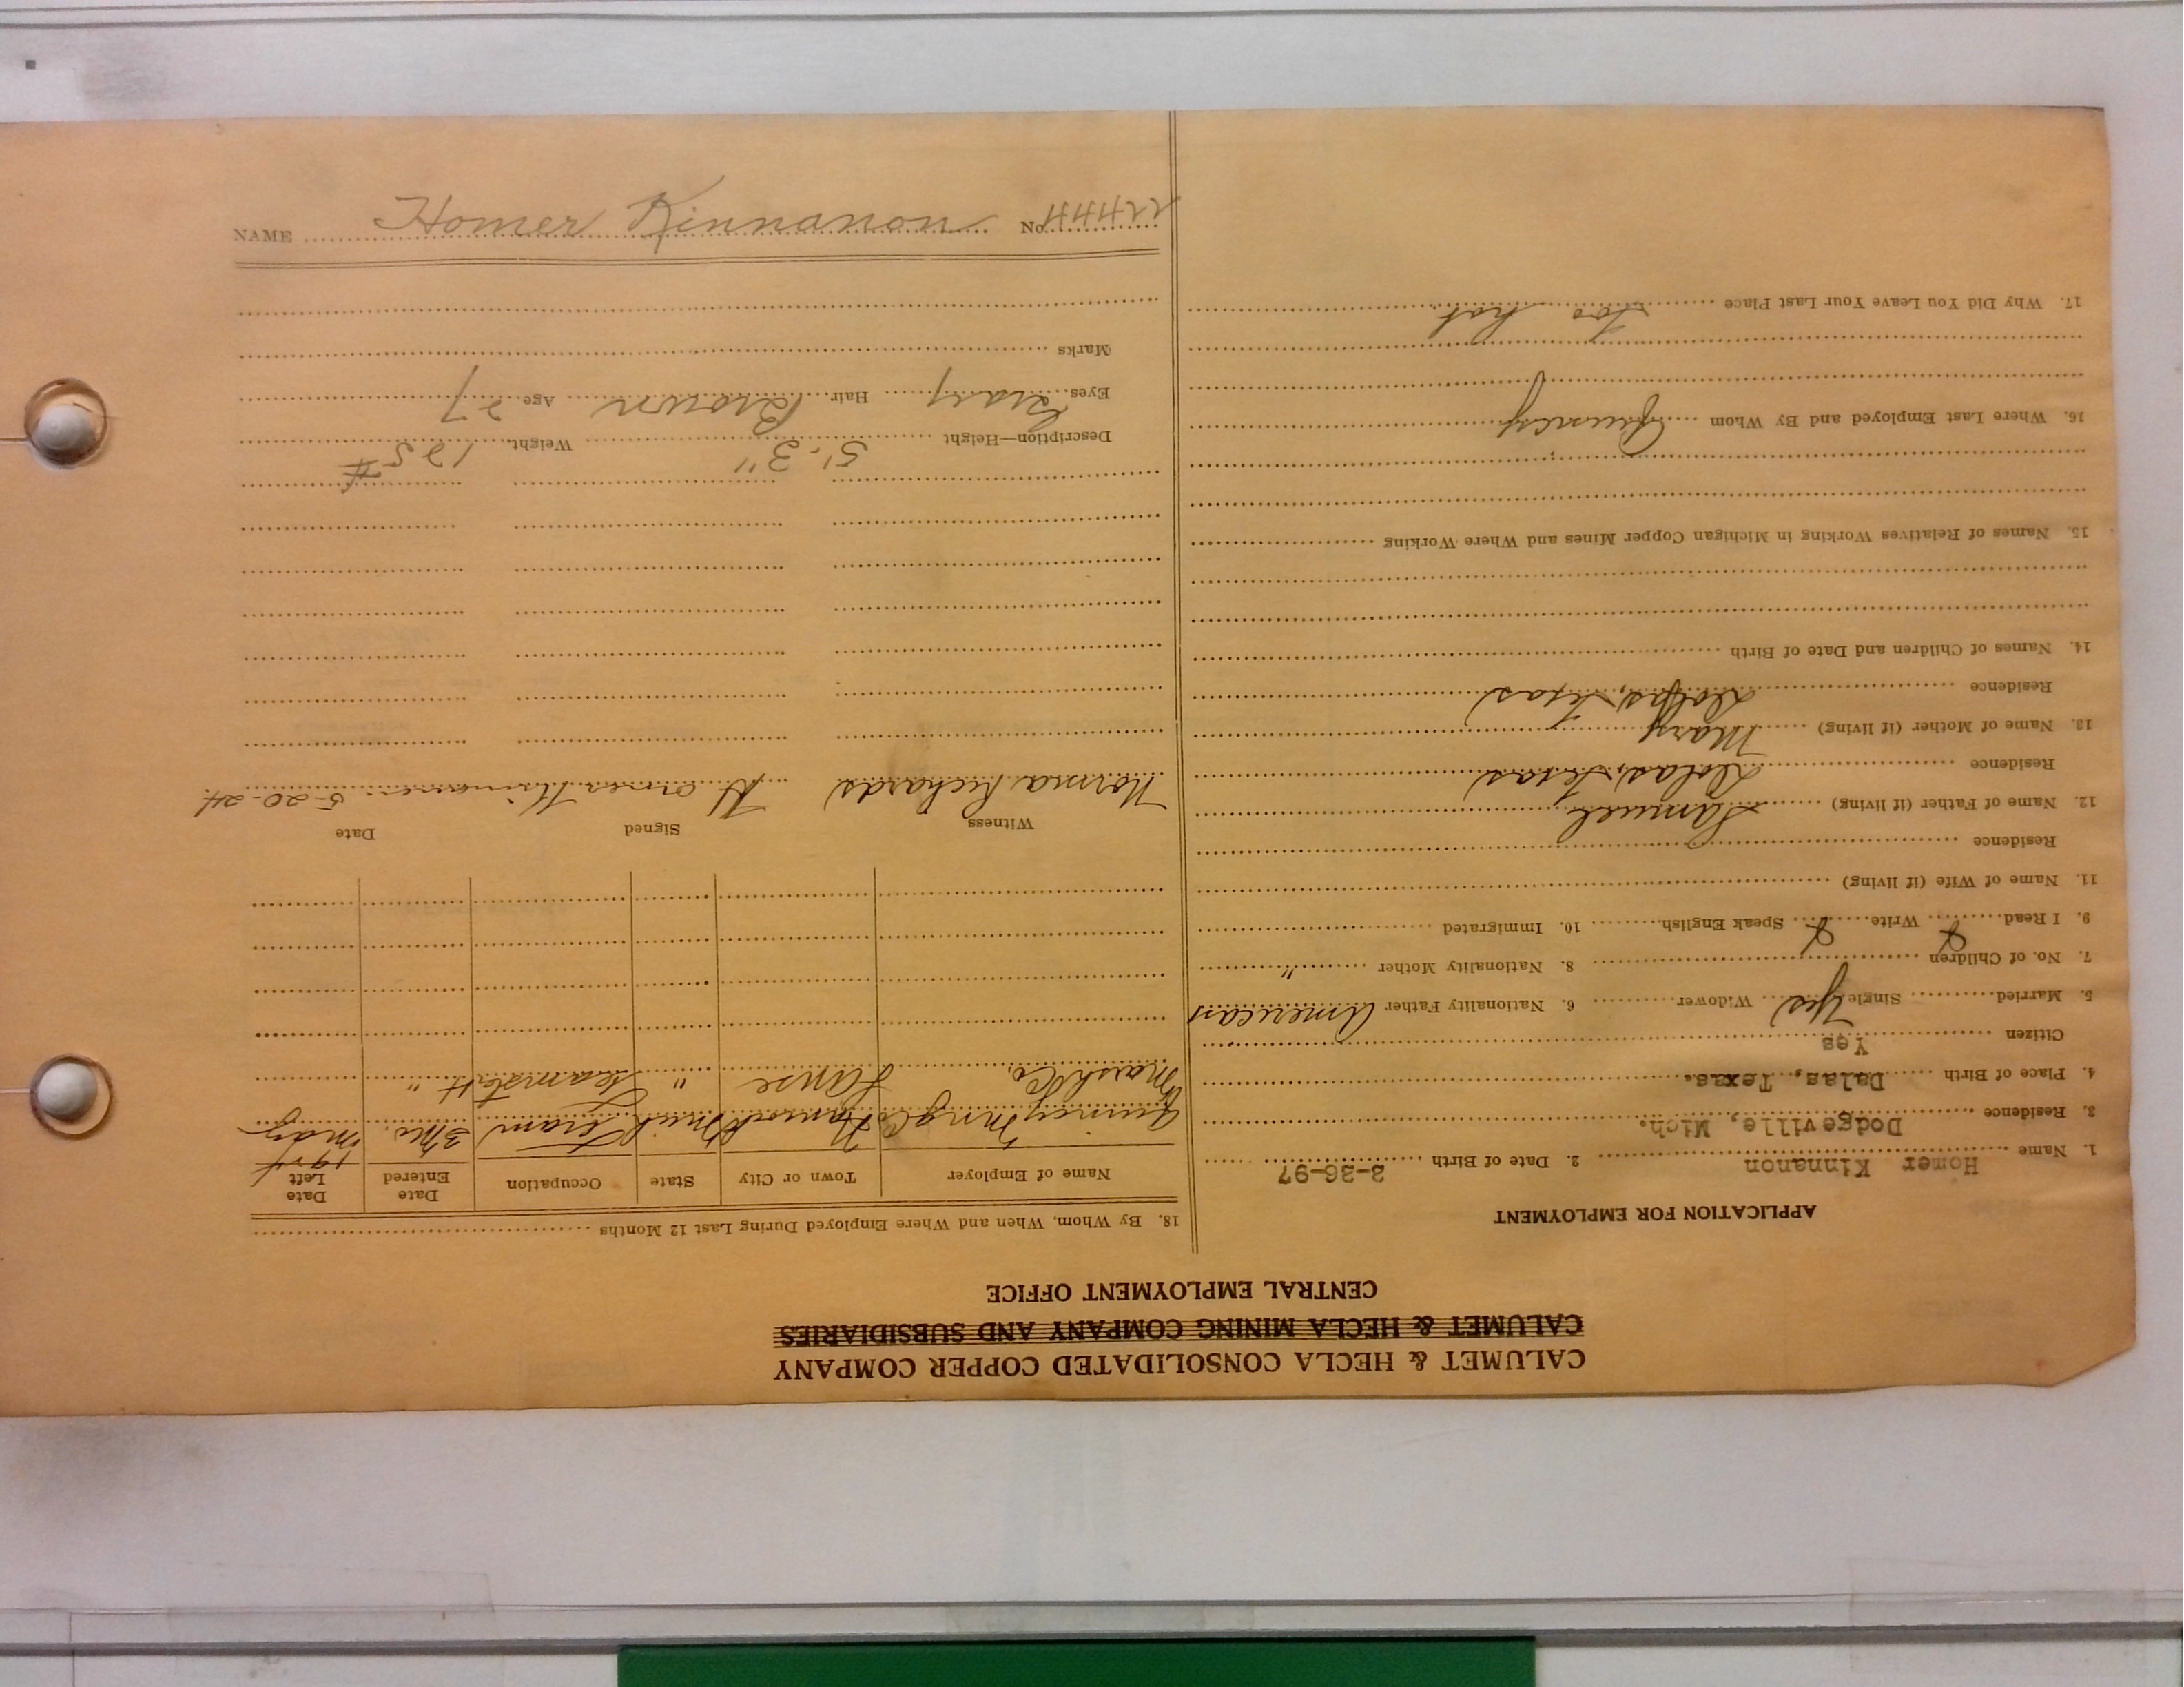 CALUMET & HECLA CONSOLIDATED COPPER COMPANY
CALUMET & HECLA MINING COMPANY AND SUBSIDIARIES
CENTRAL EMPLOYMENT OFFICE
APPLICATION FOR EMPLOYMENT
1. Name Homer Kinnanon 2. Date of Birth -26-97
3. Residence Dodgeville, Mich.
4. Place of Birth Dalas, Texas.
Citizen Yes
5. Married Single Yes Widower 6. Nationality Father American
7. No. of Children 8. Nationality Mother "
9. I Read Write Speak English 10. Immigrated
11. Name of Wife (if living)
Residence
12. Name of Father (if living) Samuel
Residence Dalas, Texas
13. Name of Mother (if living) Mary
Residence Texas
14. Names of Children and Date of Birth
15. Names of Relatives Working in Michigan Copper Mines and Where Working
16. Where Last Employed and By Whom Quincy
17. Why Did You Leave Your Last Place Too hot
18. By Whom, When and Where Employed During Last 12 Months
Name of Employer Town or City State Occupation Date Entered Date Left
1924
Quincy Mng Co Hancock Mich Team 3 Mo. May
Marsh Co. Lanse " Teamster "
Witness Signed Date
Norma Richards 5-20-24
Description—Height 5'-3" Weight 125 #
Eyes Gray Hair Brown Age 27
Marks
NAME Homer Kinnanon No.